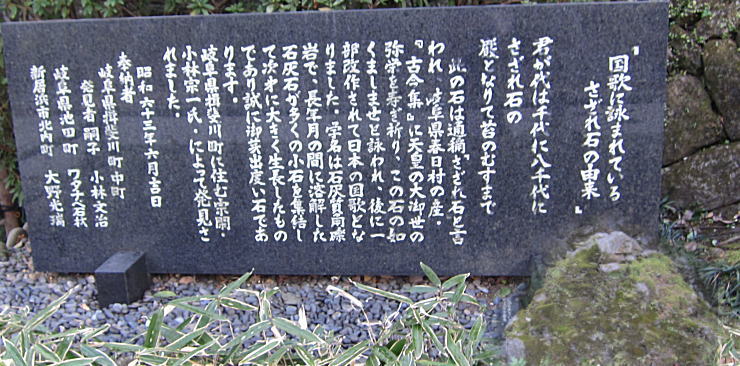 『国歌に詠まれている
さざれ石の由来』
君が代は千代に八千代に
さざれ石の
巌となりて苔のむすまで
此の石は通稱、さざれ石と言
われ、岐阜県春日村の産・
『古今集』に天皇の大御世の
弥栄を寿ぎ祈り、この石の如
くましませと詠われ、後に一
部改作されて日本の国歌とな
りました。学名は石灰質角礫
岩で、長年月の間に溶解した
石灰石が多くの小石を集結し
て次才に大きく生長したもの
であり誠に御芽出度い石であ
ります。
岐阜県揖斐川町に住む宗嗣・
小林宗一氏・によって発見さ
れました。
昭和六十三年六月吉日
奉納者
岐阜県揖斐川町中町
発見者 嗣子 小林文治
岐阜県池田町 ワタナベ石秋
新居浜市北内町 大野光瑞